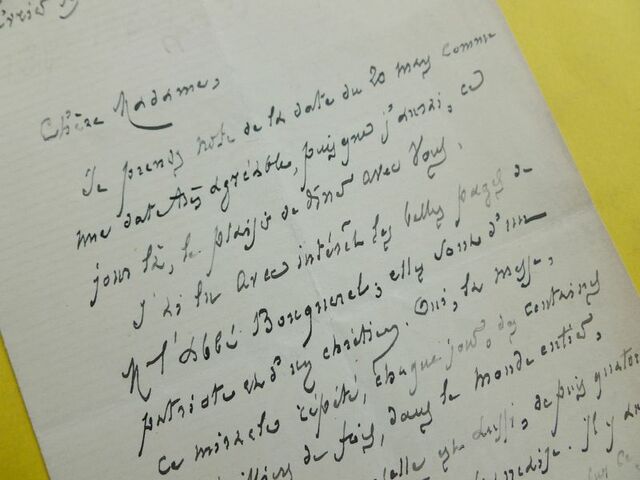 Chère Madame,
Je prends note de la date du 20 mars comme
une date très agréable, puisque j'aurai, ce
jour là, le plaisir de dîner avec Vous.
J'ai lu avec intérêt les belles pages de
M l'Abbé Bouquerel; elles sont d'un
patriote et d'un chrétien. Oui, la messe,
ce miracle répété, chaque jour, des centaines
de fois, dans le monde entier,
elle est aussi, depuis
Il y a